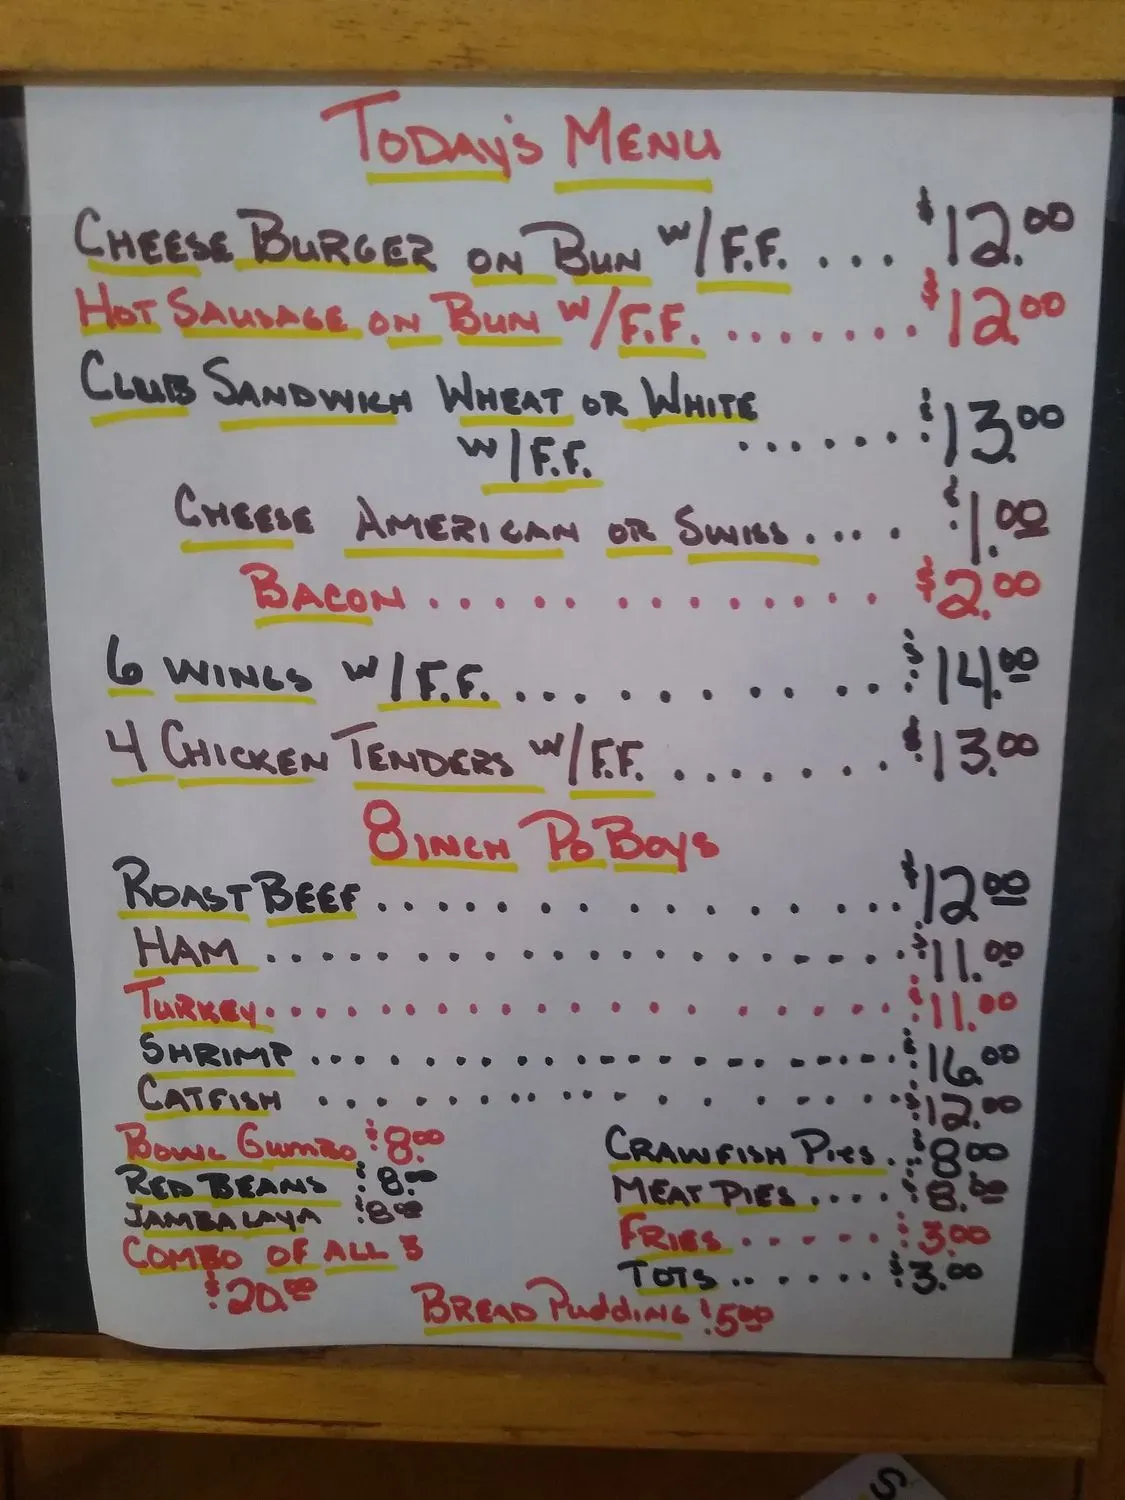 TODAY'S MENU
CHEESE BURGER ON BUN W/F.F. .... $12.00
HOT SAUSAGE ON BUN W/F.F. ....... $12.00
CLUB SANDWICH WHEAT OR WHITE
W/F.F. ....... $13.00
CHEESE AMERICAN OR SWISS .... $1.00
BACON ............. $2.00
6 WINGS W/F.F. .......... $14.00
4 CHICKEN TENDERS W/F.F. ....... $13.00
8 INCH PO BOYS
ROAST BEEF ............... $12.00
HAM .................. $11.00
TURKEY .................. $11.00
SHRIMP .................. $16.00
CATFISH .................. $12.00
BOWL GUMBO $8.00
RED BEANS $8.00
JAMBALAYA $8.00
COMBO OF ALL 3
$20.00
CRAWFISH PIES .. $8.00
MEAT PIES .... $8.00
FRIES ..... $3.00
TOTS ...... $3.00
BREAD PUDDING $5.00
S